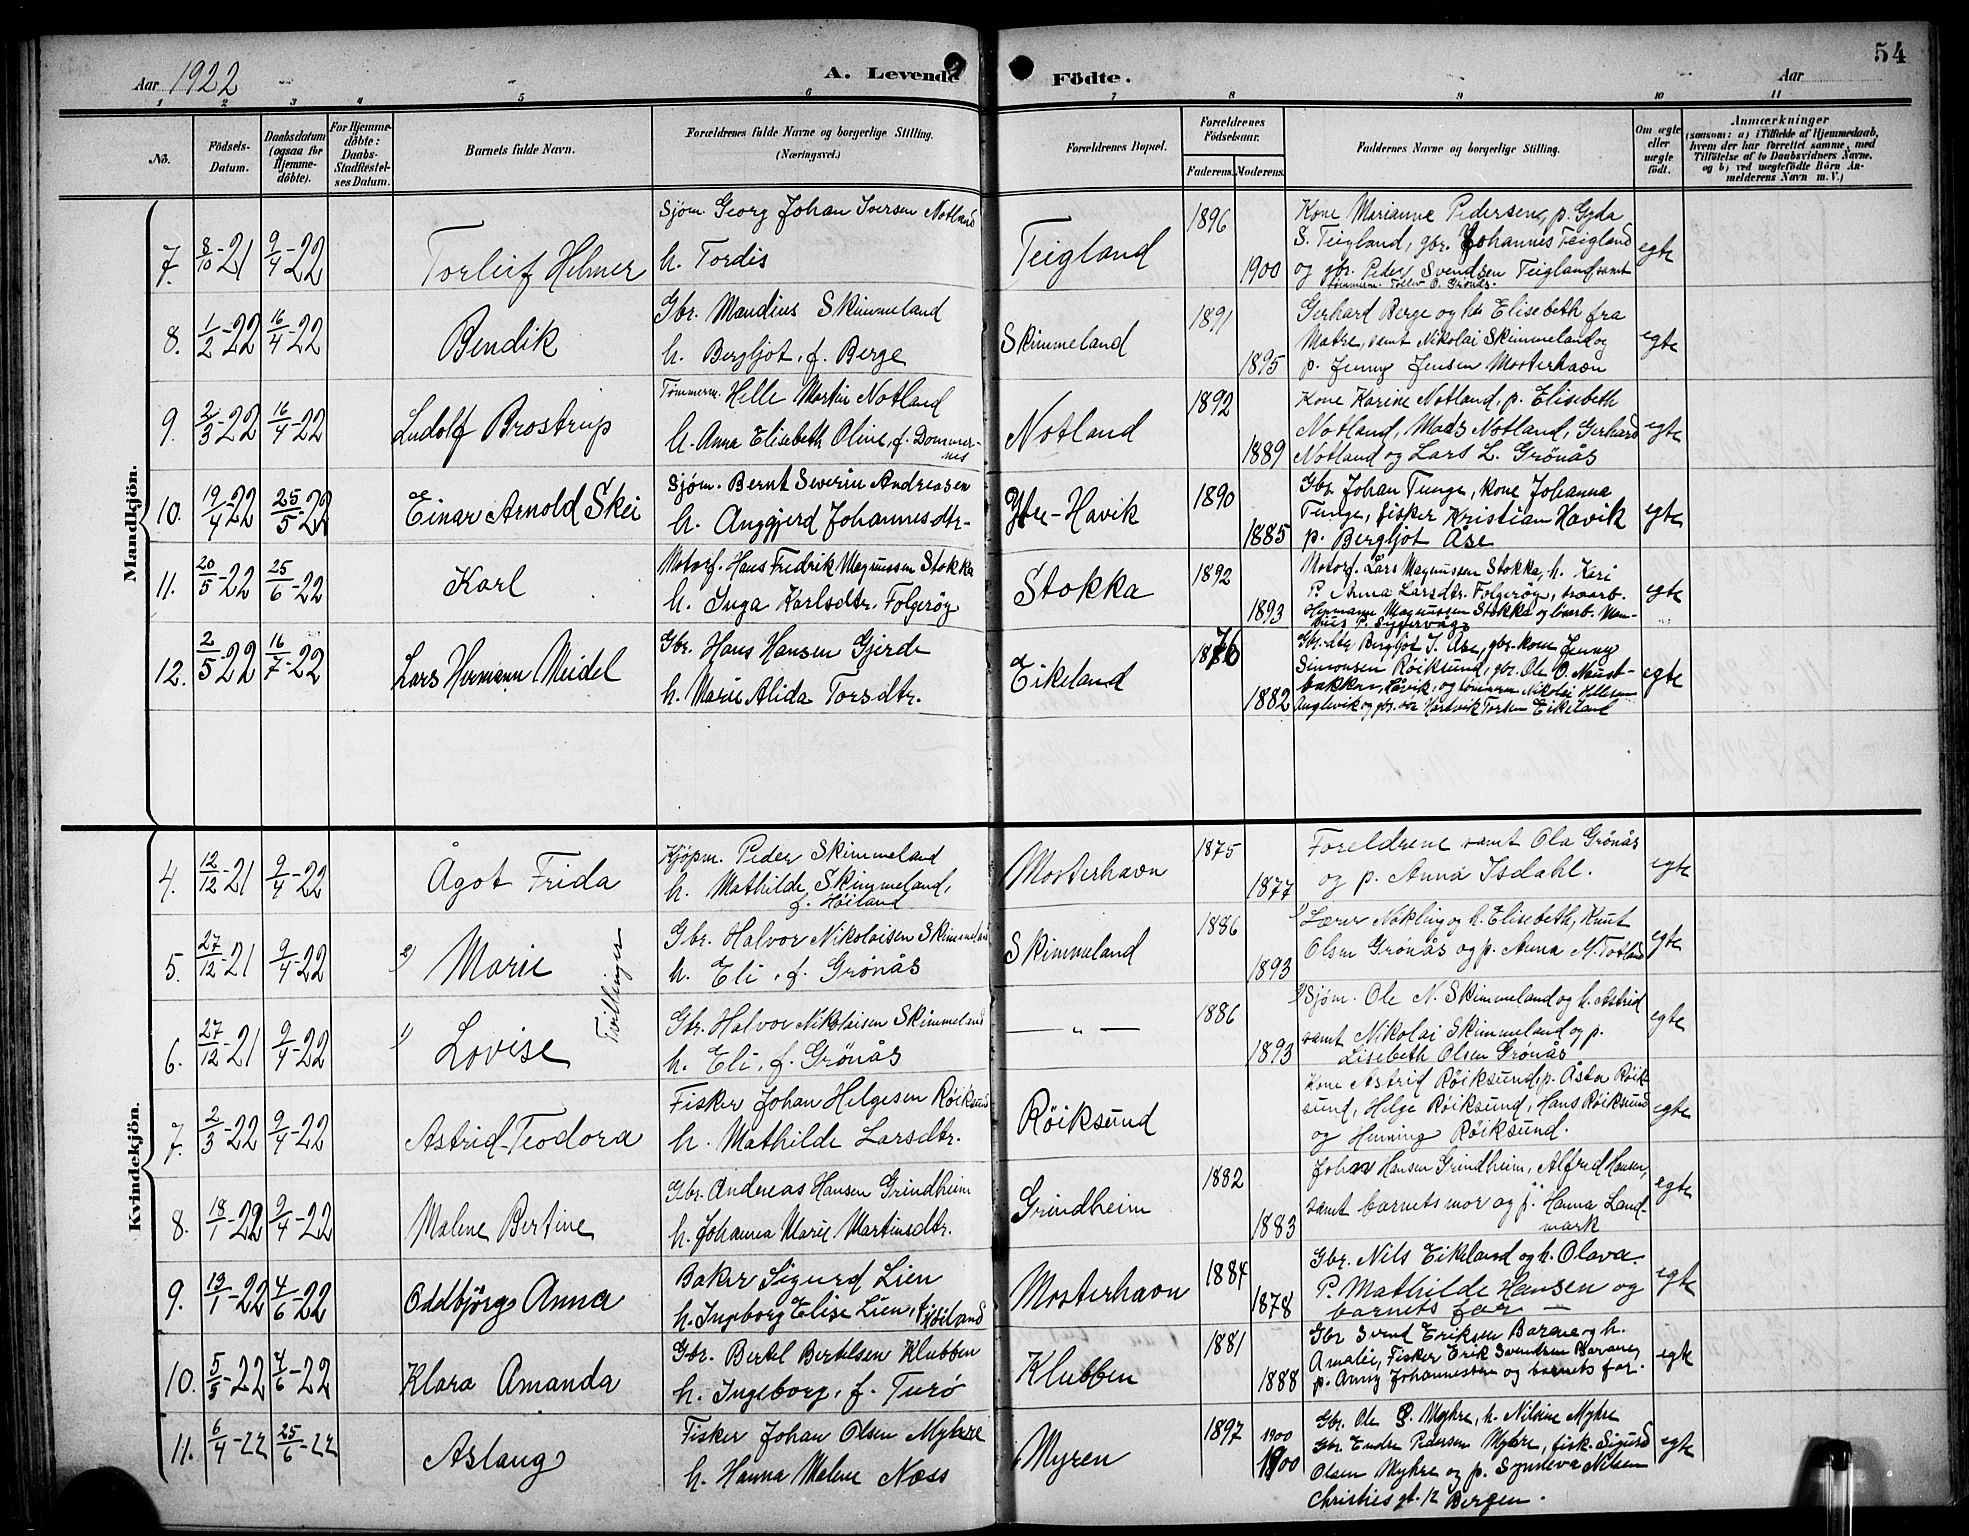 Aar 1922
A. Levende Födte.
Aar
54
1 2 3 4 5 6 7 8 9 10 11
No.
Födsels-Datum.
Daabsdatum (ogsaa for Hjemme-döbte).
For Hjemme-döbte: Daabs-Stadfæstel-ses Datum.
Barnets fulde Navn.
Forældrenes fulde Navne og borgerlige Stilling. (Næringsvei.)
Forældrenes Bopæl.
Forældrenes Födselsaar.
Faderens. Moderens.
Faddernes Navne og borgerlige Stilling.
Om ægte eller uægte født.
Anmærkninger
(saasom: a) i Tilfælde af Hjemmedaab, hvem der har forrettet samme, med Tilföielse af to Daabsvidners Navne. og b) ved uægtefödte Börn Anmelderens Navn m. V.)
Mandkjön.
7. 8/10-21 9/4-22 Torleif Helmer
Sjøm. Georg Johan Iversen Notland
h. Tordis
Teigland 1896 1900
Kone Marianne Pedersen, p. Gyda
S. Teigland, gbr. Johannes Teigland
og gbr. Peder Svendsen Teigland samt
tømmerm. Tollev O. Grönås.
egte
8. 1/2-22 16/4-22 Bendik
Gbr. Mandius Skimmeland
h. Bergljot, f. Berge
Skimmeland 1891 1895
Gerhard Berge og h. Elisebeth fra
Matre, samt Nikolai Skimmeland og
p. Jenny Jensen Mosterhavn
egte
9. 2/3-22 16/4-22 Ludolf Brostrup
Tømmerm. Helle Martin Notland
h. Anna Elisebeth Oline, f. Dommers-
nes
Notland 1892 1889
Kone Karine Notland, p. Elisebeth
Notland, Mads Notland, Gerhard
Notland og Lars L. Grönås
egte
10. 19/4-22 25/5-22 Einar Arnold Skei
Sjøm. Bernt Severin Andreasen
h. Anggjerd Johannesdtr-
Ytre-Havik 1890 1885
Gbr. Johan Tunge, kone Johanna
Tunge, fisker Kristian Havik
p. Bergljot Åse
egte
11. 20/5-22 25/6-22 Karl
Motorf. Hans Fredrik Magnussen Stokka
h. Inga Karlsdtr. Folgerøy
Stokka 1892 1893
Motorf. Lars Magnussen Stokka, h. Kari
P. Anna Larsdtr. Folgerøy, svarb.
Hermann Magnussen Stokka og
egte
12. 2/5-22 16/7-22 Lars Hermann Meidel
Gbr. Hans Hansen Gjerde
h. Marie Alida Torsdtr.
Eikeland 1876 1882
Gbr. dtr Bergljot J. Åse, gbr.kone Jenny
Simonsen Röiksund, gbr. Ole O. Naust-
bakken, Håvik, og tømmerm Nikolai Hellesen
Anglevik og gbr. Hartvik Torsen Eikeland
egte
Kvindekjön.
4. 12/12-21 9/4-22 Ågot Frida
Kjøpm. Peder Skimmeland
h. Mathilde Skimmeland,
f. Høiland
Mosterhavn 1875 1877
Foreldrene samt Ola Grönås
og p. Anna Isdahl.
egte
5. 27/12-21 9/4-22 2) Marie
Tvillinger
Gbr. Halvor Nikolaisen Skimmeland
h. Eli, f. Grönås
Skimmeland 1886 1893
1) Lærer Nökling og h. Elisebeth, Knut
Olsen Grönås og p. Anna M. Totland
egte
6. 27/12-21 9/4-22 1) Lovise
Gbr. Halvor Nikolaisen Skimmeland
h. Eli, f. Grönås
— „ — 1886 1893
2) Sjøm. Ole N. Skimmeland og h. Astrid
samt Nikolai Skimmeland og p.
Lisebeth Olsen Grönås
egte
7. 2/3-22 9/4-22 Astrid-Teodora
Fisker Johan Helgesen Röiksund
h. Mathilde Larsdtr.
Röiksund
Kone Astrid Röiksund, p. Åsta Röik-
sund, Helge Röiksund, Hans Röiksund
og Henning Röiksund.
egte
8. 18/1-22 9/4-22 Malene Bertine
Gbr. Andreas Hansen Grindheim
h. Johanna Marie Martinsdtr.
Grindheim 1882 1883
Johan Hansen Grindheim, Alfred Hansen,
samt barnets mor og p. Hanna Land-
mark
egte
9. 19/1-22 4/6-22 Oddbjörg Anna
Baker Sigurd Lien
h. Ingeborg Elise Lien, f. Høiland
Mosterhavn 1884 1878
Gbr. Nils Eikeland og h. Olava.
P. Mathilde Hansen og
barnets far —
egte
10. 5/5-22 4/6-22 Klara Amanda
Gbr. Bertel Bertelsen Klubben
h. Ingeborg, f. Turö
Klubben 1881 1888
Gbr Svend Eriksen Barane og h.
Amalie, Fisker Erik Svendsen Barane,
p. Anny Johannessen og barnets far.
egte
11. 6/4-22 25/6-22 Aslaug
Fisker Johan Olsen Myhre
h. Hanna Malene Næss
Myren 1897 1900 1900
Gbr. Ole P. Myhre, h. Nilsine Myhre
Gbr. Endre Pedersen Myhre, fisk. Sigurd
Olsen Myhre og p. Synneva Nilsen
Christies gt. 12 Bergen.
egte